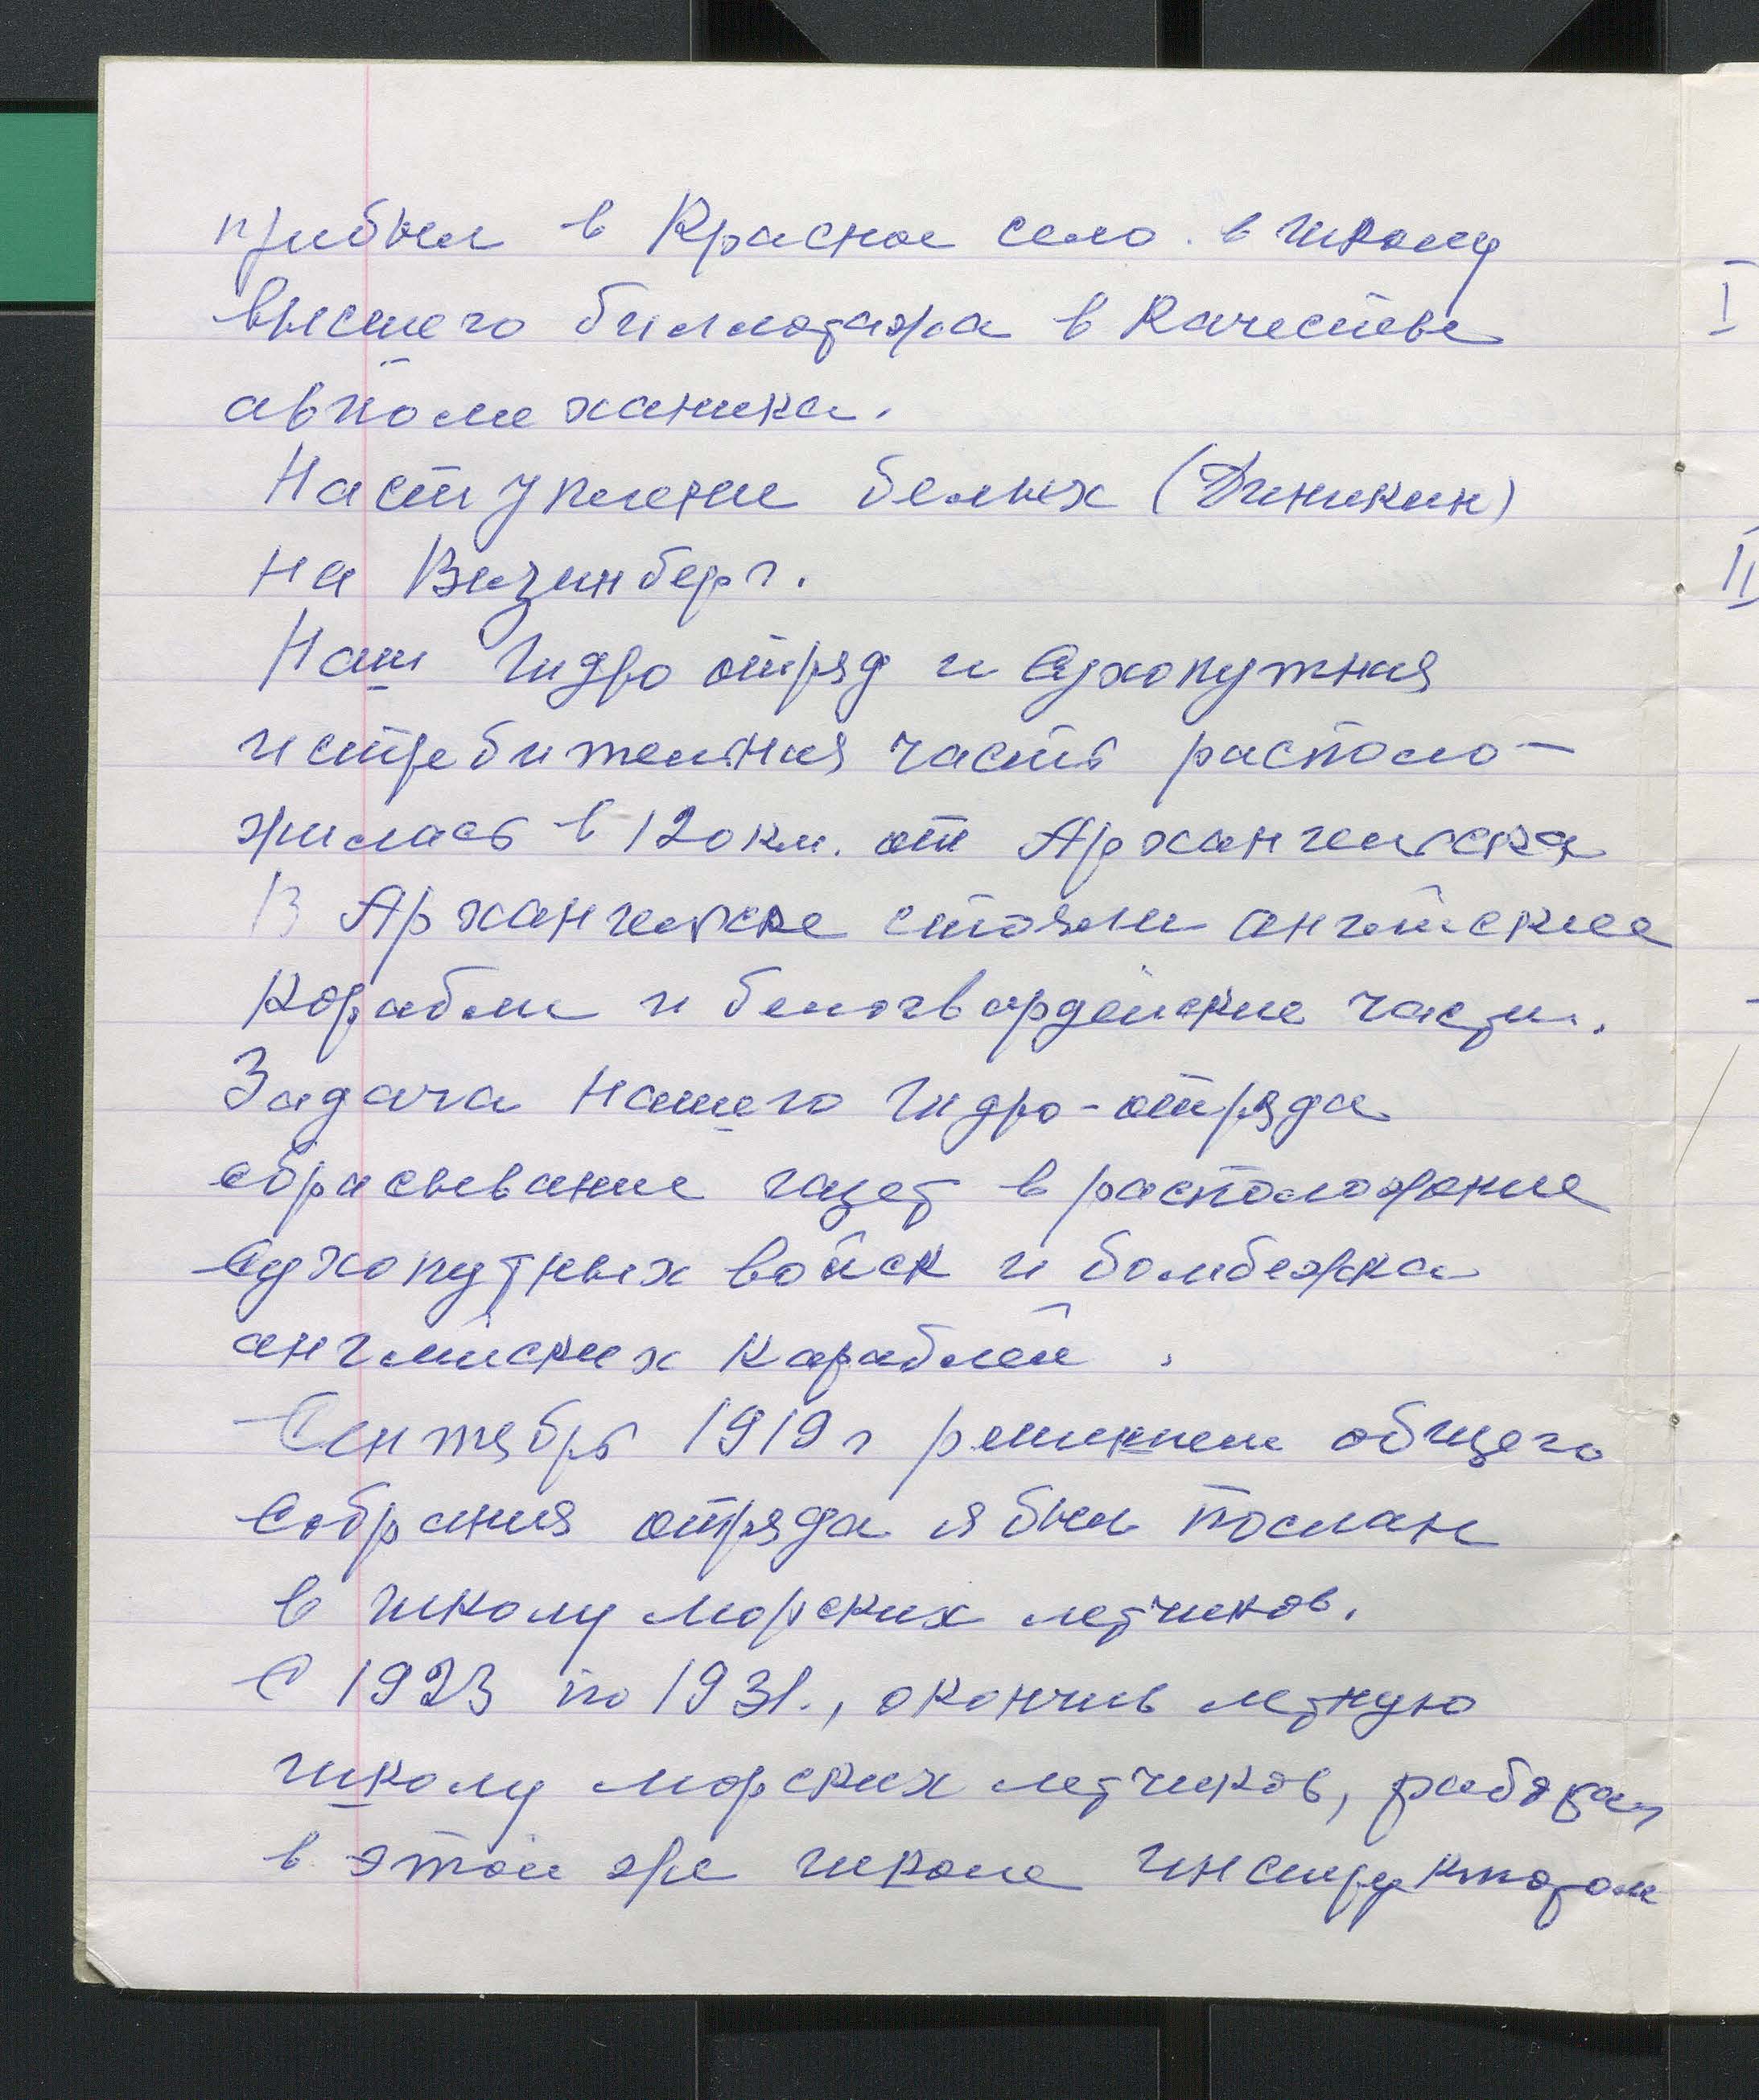 прибыл в Красное село в школу
высшего билотажа в качестве
автомеханика.
Наступление белых (Деникин)
на Визинберг.
Наш Гидро отряд и Сухопутная
истребительная часть располо-
жилась в 120 км. от Архангельска
В Архангельске стояли английские
корабли и белогвардейские части.
Задача нашего Гидро-отряда
сбрасывание газет в расположение
Сухопутных войск и бомбежка
английских караблей.
Сентябрь 1919 г решением общего
Собрания отряда я был послан
в школу морских летчиков.
С 1923 по 1931., окончив летную
школу морских летчиков, работал
в этой же школе инструктором
I
II